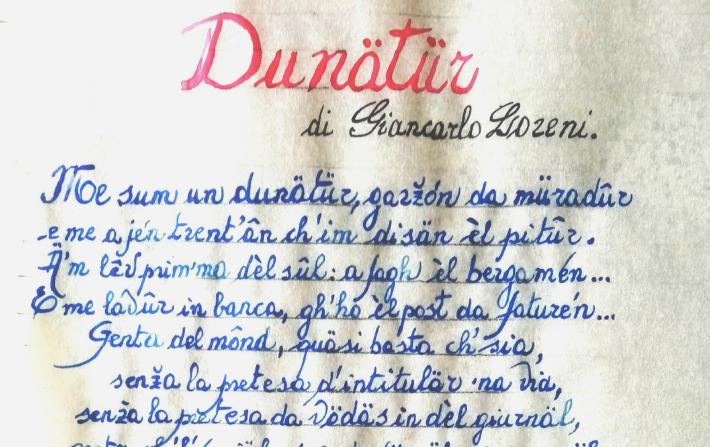 Dunätür
di Giancarlo Lozeni.
Me sum un dunätür, garžón da müradûr
e me a jén trent'ân ch'im disän èl pitûr.
Ä'm lëv prim'ma dèl sûl: a fagh èl bergamén...
E me lavûr in banca, gh'hó èl post da faturén...
Genta del mônd, quäsi basta ch'sia,
senža la pretesa d'intitulär 'na via,
senža la pretesa da vödäs in dèl giurnäl,